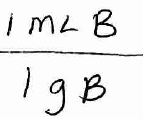 1 mL B
1 g B